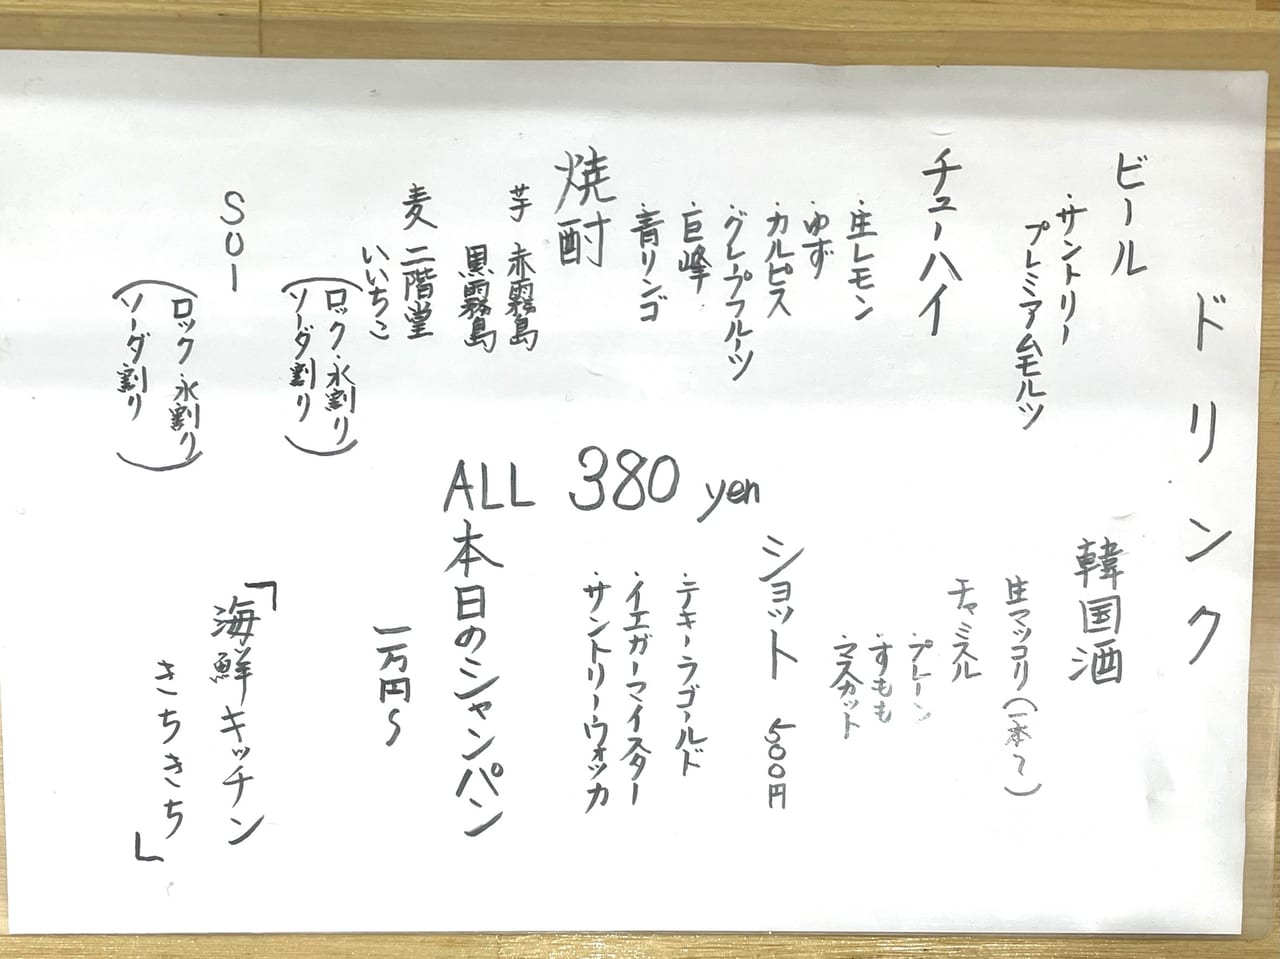 ドリンク
ビール
・サントリー
プレミアムモルツ
チューハイ
・生レモン
・ゆず
・カルピス
・グレープフルーツ
・巨峰
・青リンゴ
焼酎
芋 赤霧島
黒霧島
麦 二階堂
いいちこ
(ロック・水割り
ソーダ割り)
SUI
(ロック・水割り
ソーダ割り)
ALL 380 yen
韓国酒
生マッコリ(一本で)
チャミスル
・プレーン
・すもも
・マスカット
ショット 500円
・テキーラゴールド
・イエガーマイスター
・サントリーウォッカ
本日のシャンパン
一万円~
「海鮮キッチン
きちきち」